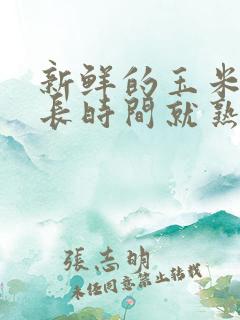 新鮮的玉米
長時間就熟
張志明
未經同意禁止轉載